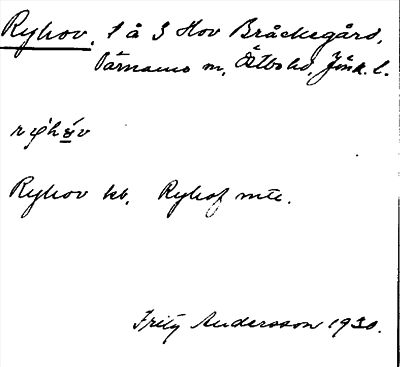 Ryhov, 1 å 3 Hov Bråckegård,
Tärnamo m, Östbo hd, Jönk. l.
Ryhov kb, Ryhof mtc.
Fritz Andersson 1930.